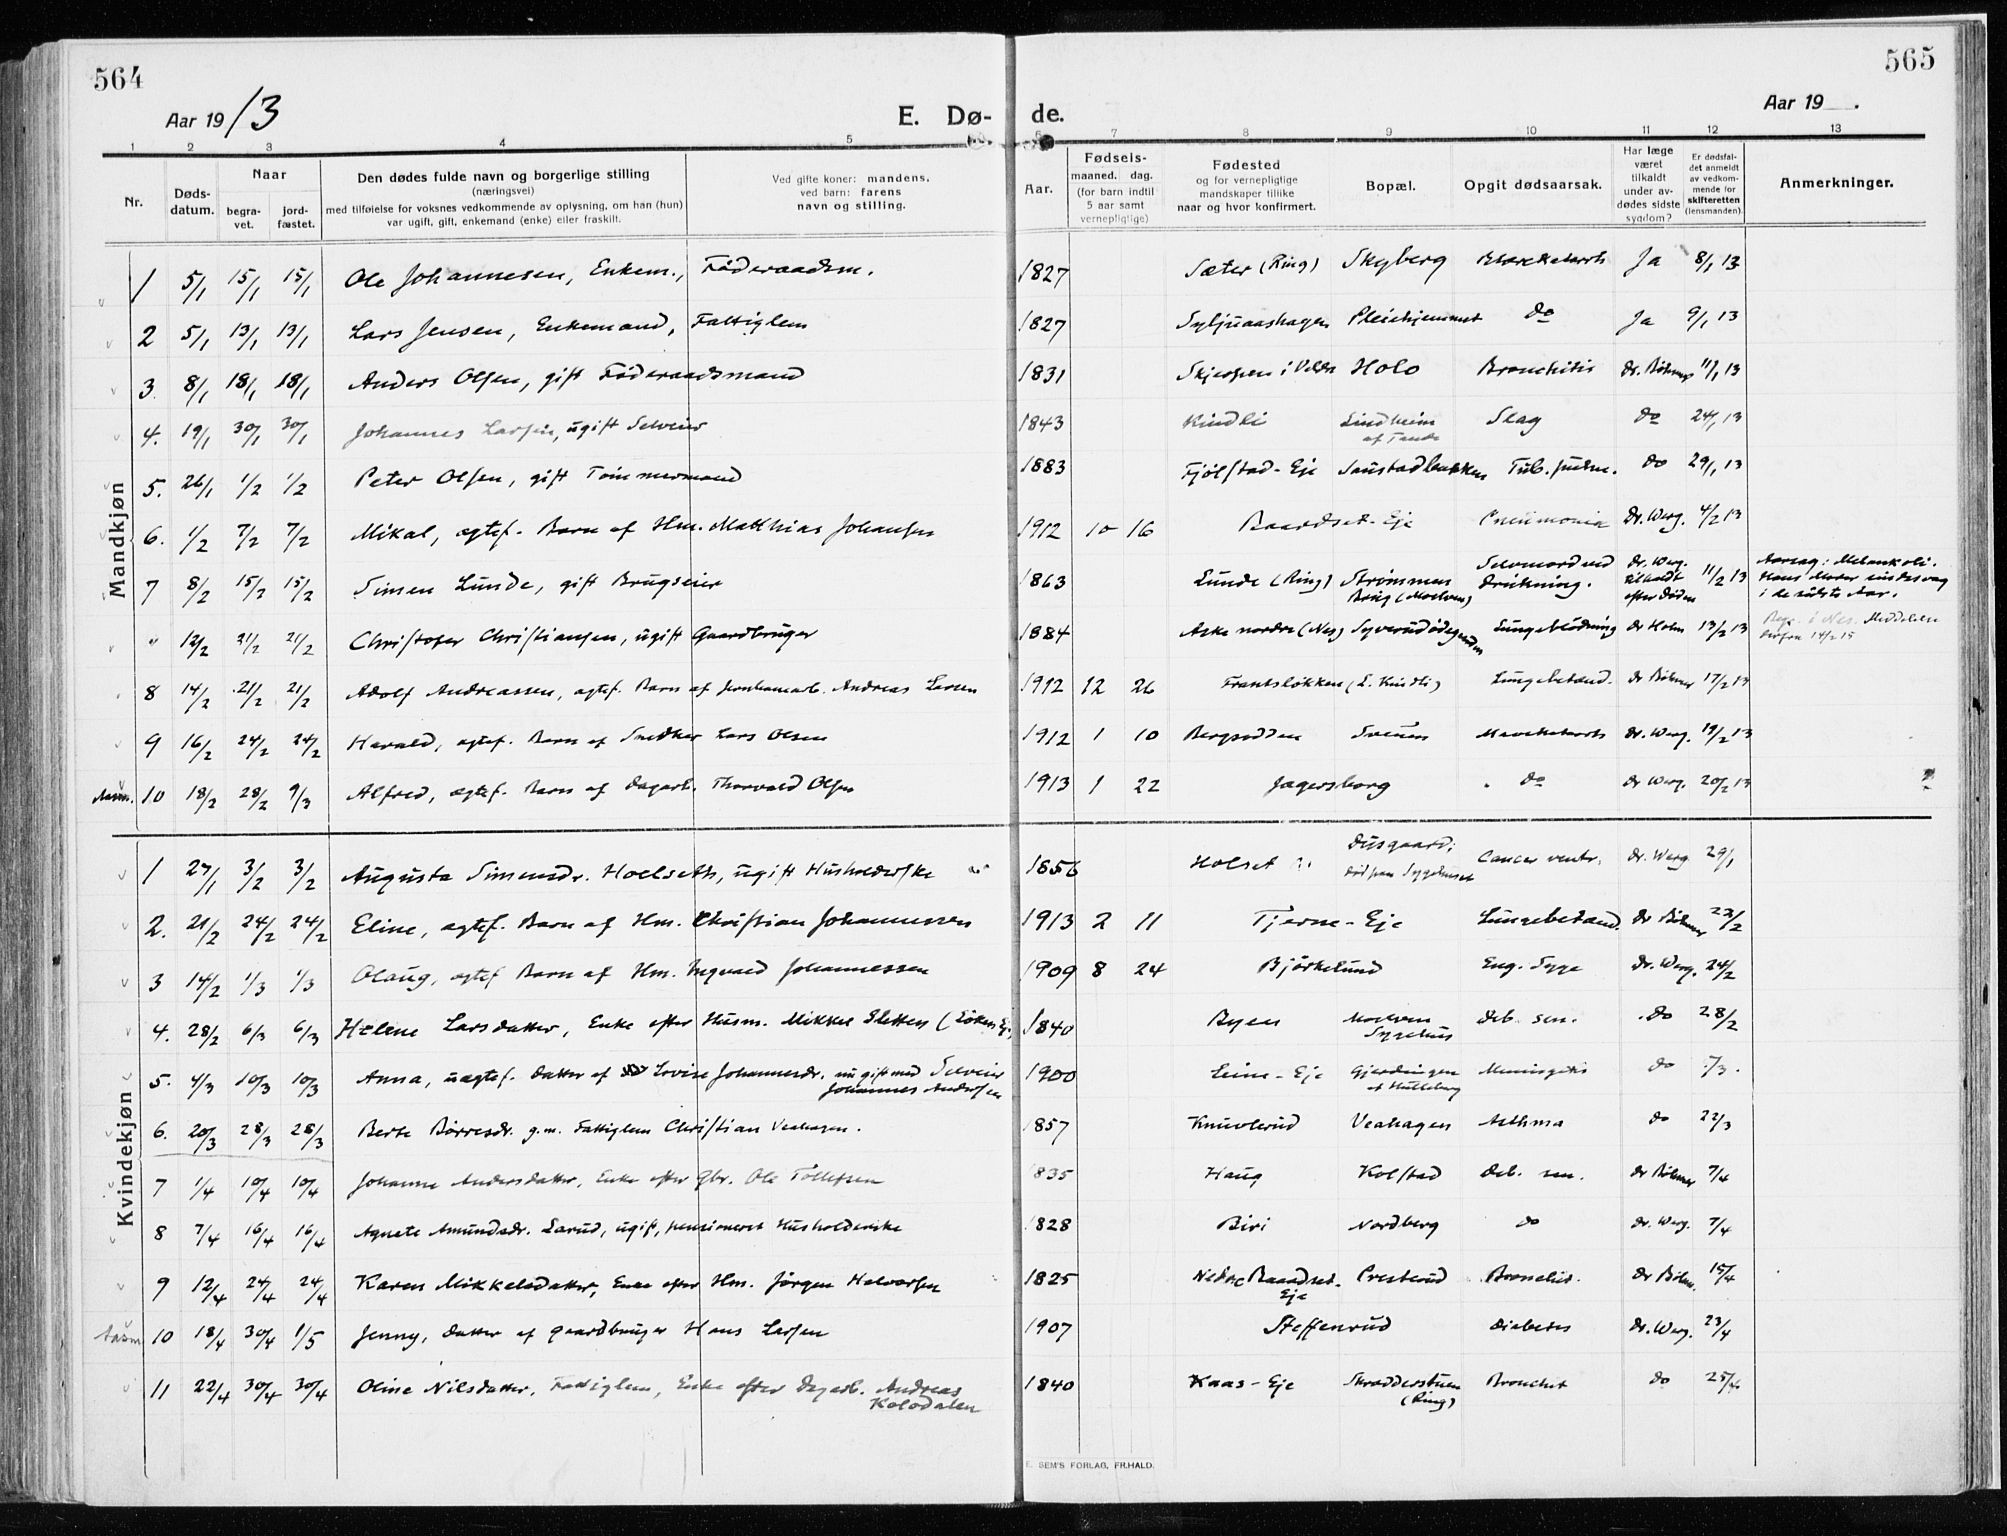 564
565
Aar 1913
E. Dø- de.
Aar 19 .
1 2 3 4 5 6 7 8 9 10 11 12 13
Nr.
Døds-datum.
Naar
begra-vet.
jord-fæstet.
Den dødes fulde navn og borgerlige stilling
(næringsvei)
med tilføielse for voksnes vedkommende av oplysning, om han (hun)
var ugift, gift, enkemand (enke) eller fraskilt.
Ved gifte koner: mandens.
ved barn: farens
navn og stilling.
Aar.
Fødsels-
maaned. dag.
(for barn indtil
5 aar samt
vernepligtige)
Fødested
og for vernepligtige
mandskaper tillike
naar og hvor konfirmert.
Bopæl.
Opgit dødsaarsak.
Har læge
været
tilkaldt
under av-
dødes sidste
sygdom?
Er dødsfal-
det anmeldt
av vedkom-
mende for
skifteretten
(lensmanden).
Anmerkninger.
Mandkjøn
1 5/1 15/1 15/1 Ole Johannesen, Enkem., Føderaadsm. 1827 Sæter (Ring) Skyberg Ja 8/1 13
2 5/1 13/1 13/1 Lars Jensen, Enkemand, Fattiglem 1827 Syljuaashagen Pleiehjemmet do Ja 9/1 13
3. 8/1 18/1 18/1 Anders Olsen, gift Føderaadsmand 1831 Holo Bronchitis Dr. Böhmer 11/1 13
4. 19/1 30/1 30/1 Johannes Larsen, ugift Selveier 1843 Kindli Lindheim Slag do 24/1 13
5. 26/1 1/2 1/2 Peter Olsen, gift Tømmermand 1883 Fjølstad-Eje Saustadbakken Tub. pulm. do 29/1 13
6. 1/2 7/2 7/2 Mikal, egtef. Barn af Hm. Matthias Johansen 1912 10 16 Baardset-Eje Pneumonia Dr. Werg. 4/2 13
7 8/2 15/2 15/2 Simen Lunde, gift Brugseier 1863 Lunde (Ring) Strømmen Brug (Moelven) Selvmord ved drukning. Dr. Werg. tilkaldt efter Døden 11/2 13 Aarsag: Melankoli. Hans Moder sindssvag i de sidste Aar.
" 12/2 21/2 21/2 Christofer Christiansen, ugift Gaardbruger 1884 Aske nordre (Nes) Syverudødegaarden Lungeblødning Dr Holm 13/2 13 Begr. i Nes. Meddelelse herfra 14/2 15
8 14/2 21/2 21/2 Adolf Andreassen, egtef. Barn af Jernbanearb. Andreas Larsen 1912 12 26 Frantsløkken (L. Kindli) Lungebetænd. Dr Böhmer 17/2 13
9 16/2 24/2 24/2 Harald, egtef. Barn af Snedker Lars Olsen 1912 1 10 Bergsodden Svenn Dr. Werg. 19/2 13
10 18/2 28/2 9/3 Alfred, egtef. Barn af Dagarb. Thorvald Olsen 1913 1 22 Jagersborg do Dr Werg. 20/2 13
Kvindekjøn
1 27/1 3/2 3/2 Auguste Simensdr. Hoelseth, ugift Husholderske 1856 Holset Dusgaard; død paa Sygehuset Cancer ventr. Dr. Werg. 29/1
2. 21/2 24/2 24/2 Eline, egtef. Barn af Hm. Christian Johannessen 1913 2 11 Tjerne-Eje Lungebetænd. Dr Böhmer 22/2
3 14/2 1/3 1/3 Olaug, egtef Barn af Hm. Ingvald Johannessen 1909 8 24 Bjørkelund Eng. Syge Dr. Werg. 24/2
4. 28/2 6/3 6/3 Helene Larsdatter, Enke efter Husm. Mikkel Sletten (Løken Ej. 1840 Byen Moelven Sygehus deb. sen. do 28/2
5. 4/3 10/3 10/3 Anna, uegtef. datter af Lovise Johannesdr. nu gift med Selveier Johannes Andersen 1900 Leine-Eje Gjerdingen af Hulleberg Meningitis do 7/3.
6. 20/3 28/3 28/3 Berte Børresdr. g.m. Fattiglem Christian Veahagen. 1857 Knuvlerud Veahagen Asthma do 22/3
7 1/4 10/4 10/4 Johanne Andersdatter, Enke efter Gbr. Ole Tollefsen 1835 Haug Kolstad deb. sen. Dr Böhmer 7/4
8 7/4 16/4 16/4 Agnete Amundsdr. Larud, ugift, pensioneret Husholderske 1828 Biri Nordberg do Dr. Werg. 7/4
9 12/4 24/4 24/4 Karen Mikkelsdatter, Enke efter Hm. Jørgen Halvorsen 1825 Nedre Baardset-Eje Presterud Bronchit. Dr Böhm. 15/4
10 18/4 30/4 1/5 Jenny, datter af gaardbruger Hans Larsen 1907 Steffenrud Diabetes Dr. Werg. 23/4
11 22/4 30/4 30/4 Oline Nilsdatter, Fattiglem, Enke efter Dagarb. Andreas Kolodalen 1840 Kaas-Eje Skradderstuen (Ring) Bronchit do 25/4
E. SEM'S FORLAG, FR.HALD.